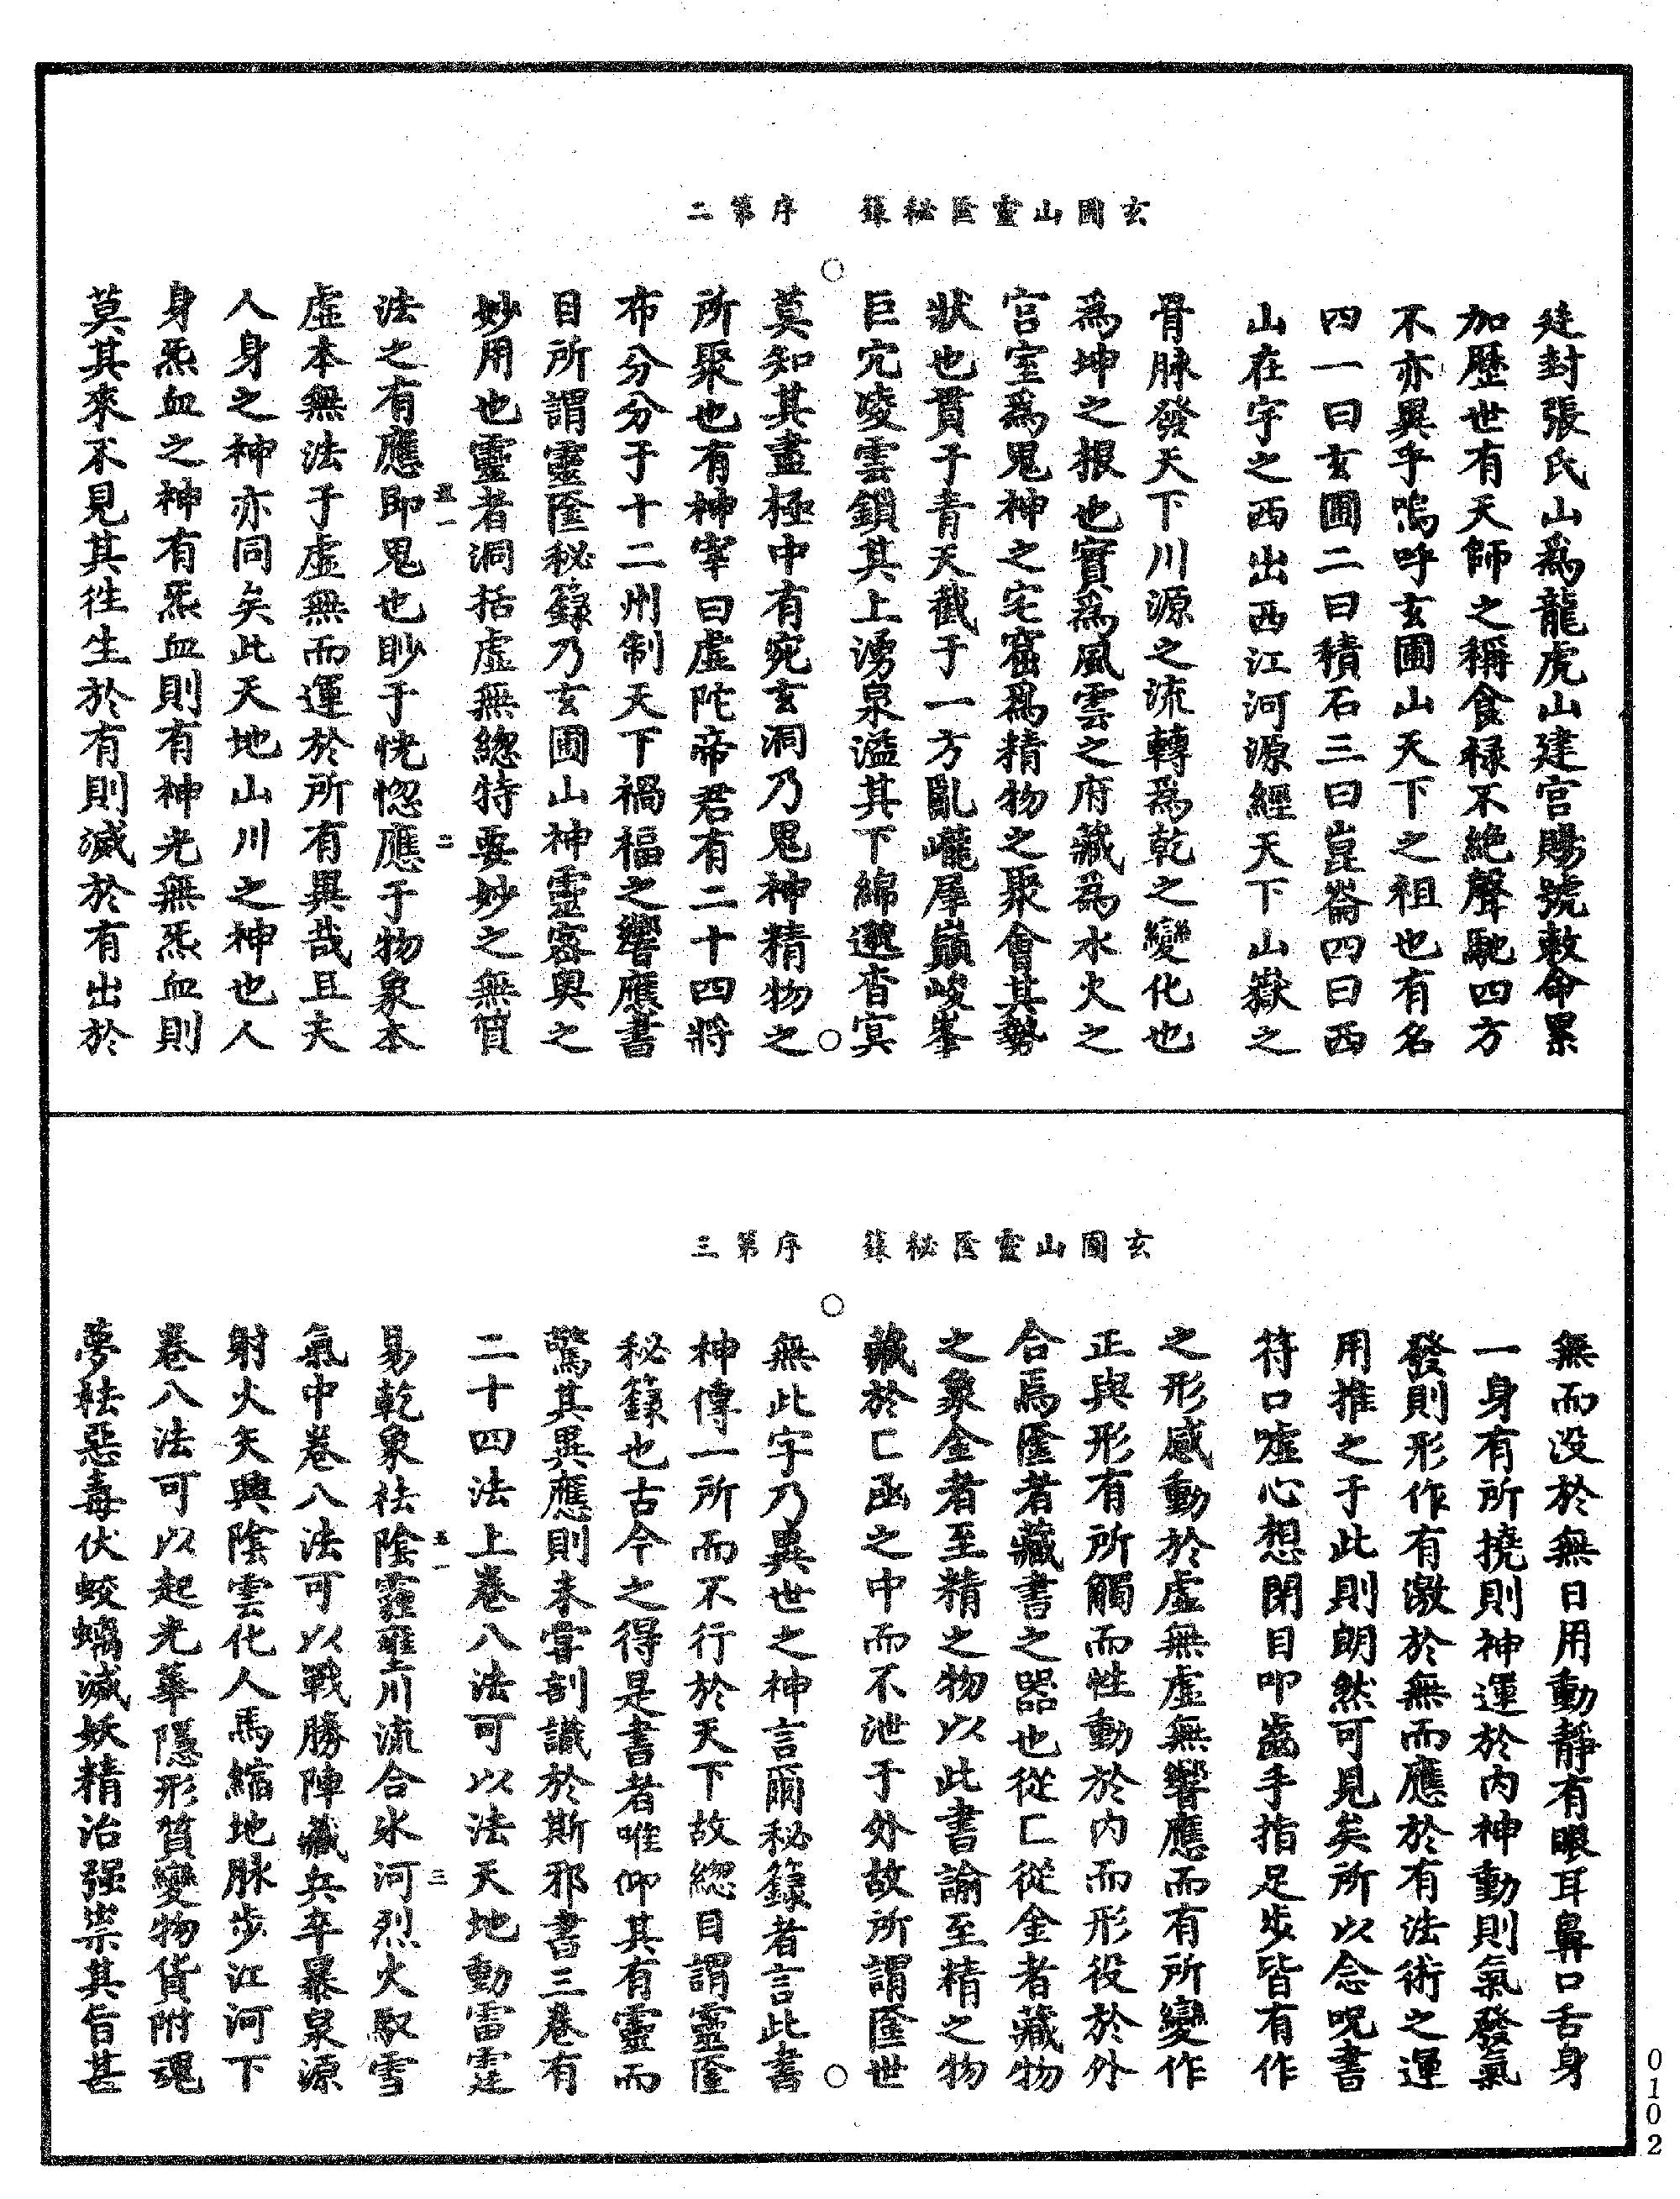 玄圃山靈匧秘籙　序第二
建封張氏山爲龍虎山建宮賜號敕命累
加歷世有天師之稱食祿不絕聲馳四方
不亦異乎嗚呼玄圃山天下之祖也有名
四一曰玄圃二曰積石三曰崑崙四曰西
山在宇之西出西江河源經天下山嶽之
骨脉發天下川源之流轉爲乾之變化也
爲坤之根也實爲風雲之府藏爲水火之
宮室爲鬼神之宅窟爲精物之聚會其勢
狀也貫于青天截于一方亂巄犀巔峻峯
巨宂凌雲鎖其上湧泉溢其下綿邈杳冥
莫知其盡極中有宛玄洞乃鬼神精物之
所聚也有神宰曰虛陀帝君有二十四將
布分分于十二州制天下禍福之響應書
目所謂靈匧秘籙乃玄圃山神靈密奧之
妙用也靈者洞括虛無緫持要妙之無質
法之有應即鬼也眇于恍惚應于物象本
虛本無法于虛無而運於所有異哉且夫
人身之神亦同矣此天地山川之神也人
身炁血之神有炁血則有神光無炁血則
莫其來不見其徃生於有則滅於有出於
玄圃山靈匧秘籙　序第三
無而没於無日用動靜有眼耳鼻口舌身
一身有所撓則神運於内神動則氣發氣
發則形作有激於無而應於有法術之運
用推之于此則朗然可見矣所以念呪書
符口噓心想閉目叩齒手指足步皆有作
之形感動於虛無虛無響應而有所變作
正與形有所觸而性動於内而形役於外
合焉匧者藏書之器也從匚從金者藏物
之象金者至精之物以此書諭至精之物
藏於匚函之中而不泄于外故所謂匧世
無此字乃異世之神言爾秘籙者言此書
神傳一所而不行於天下故緫目謂靈匧
秘籙也古今之得是書者唯仰其有靈而
驚其異應則未甞剖識於斯邪書三卷有
二十四法上卷八法可以法天地動雷霆
易乾象祛陰霾壅川流合氷河烈火馭雪
氣中卷八法可以戰勝陣藏兵卒暴泉源
射火矢興陰雲化人馬縮地脉步江河下
卷八法可以起光華隱形質變物貨附魂
夢祛惡毒伏蛟螭滅妖精治强祟其旨甚
0102